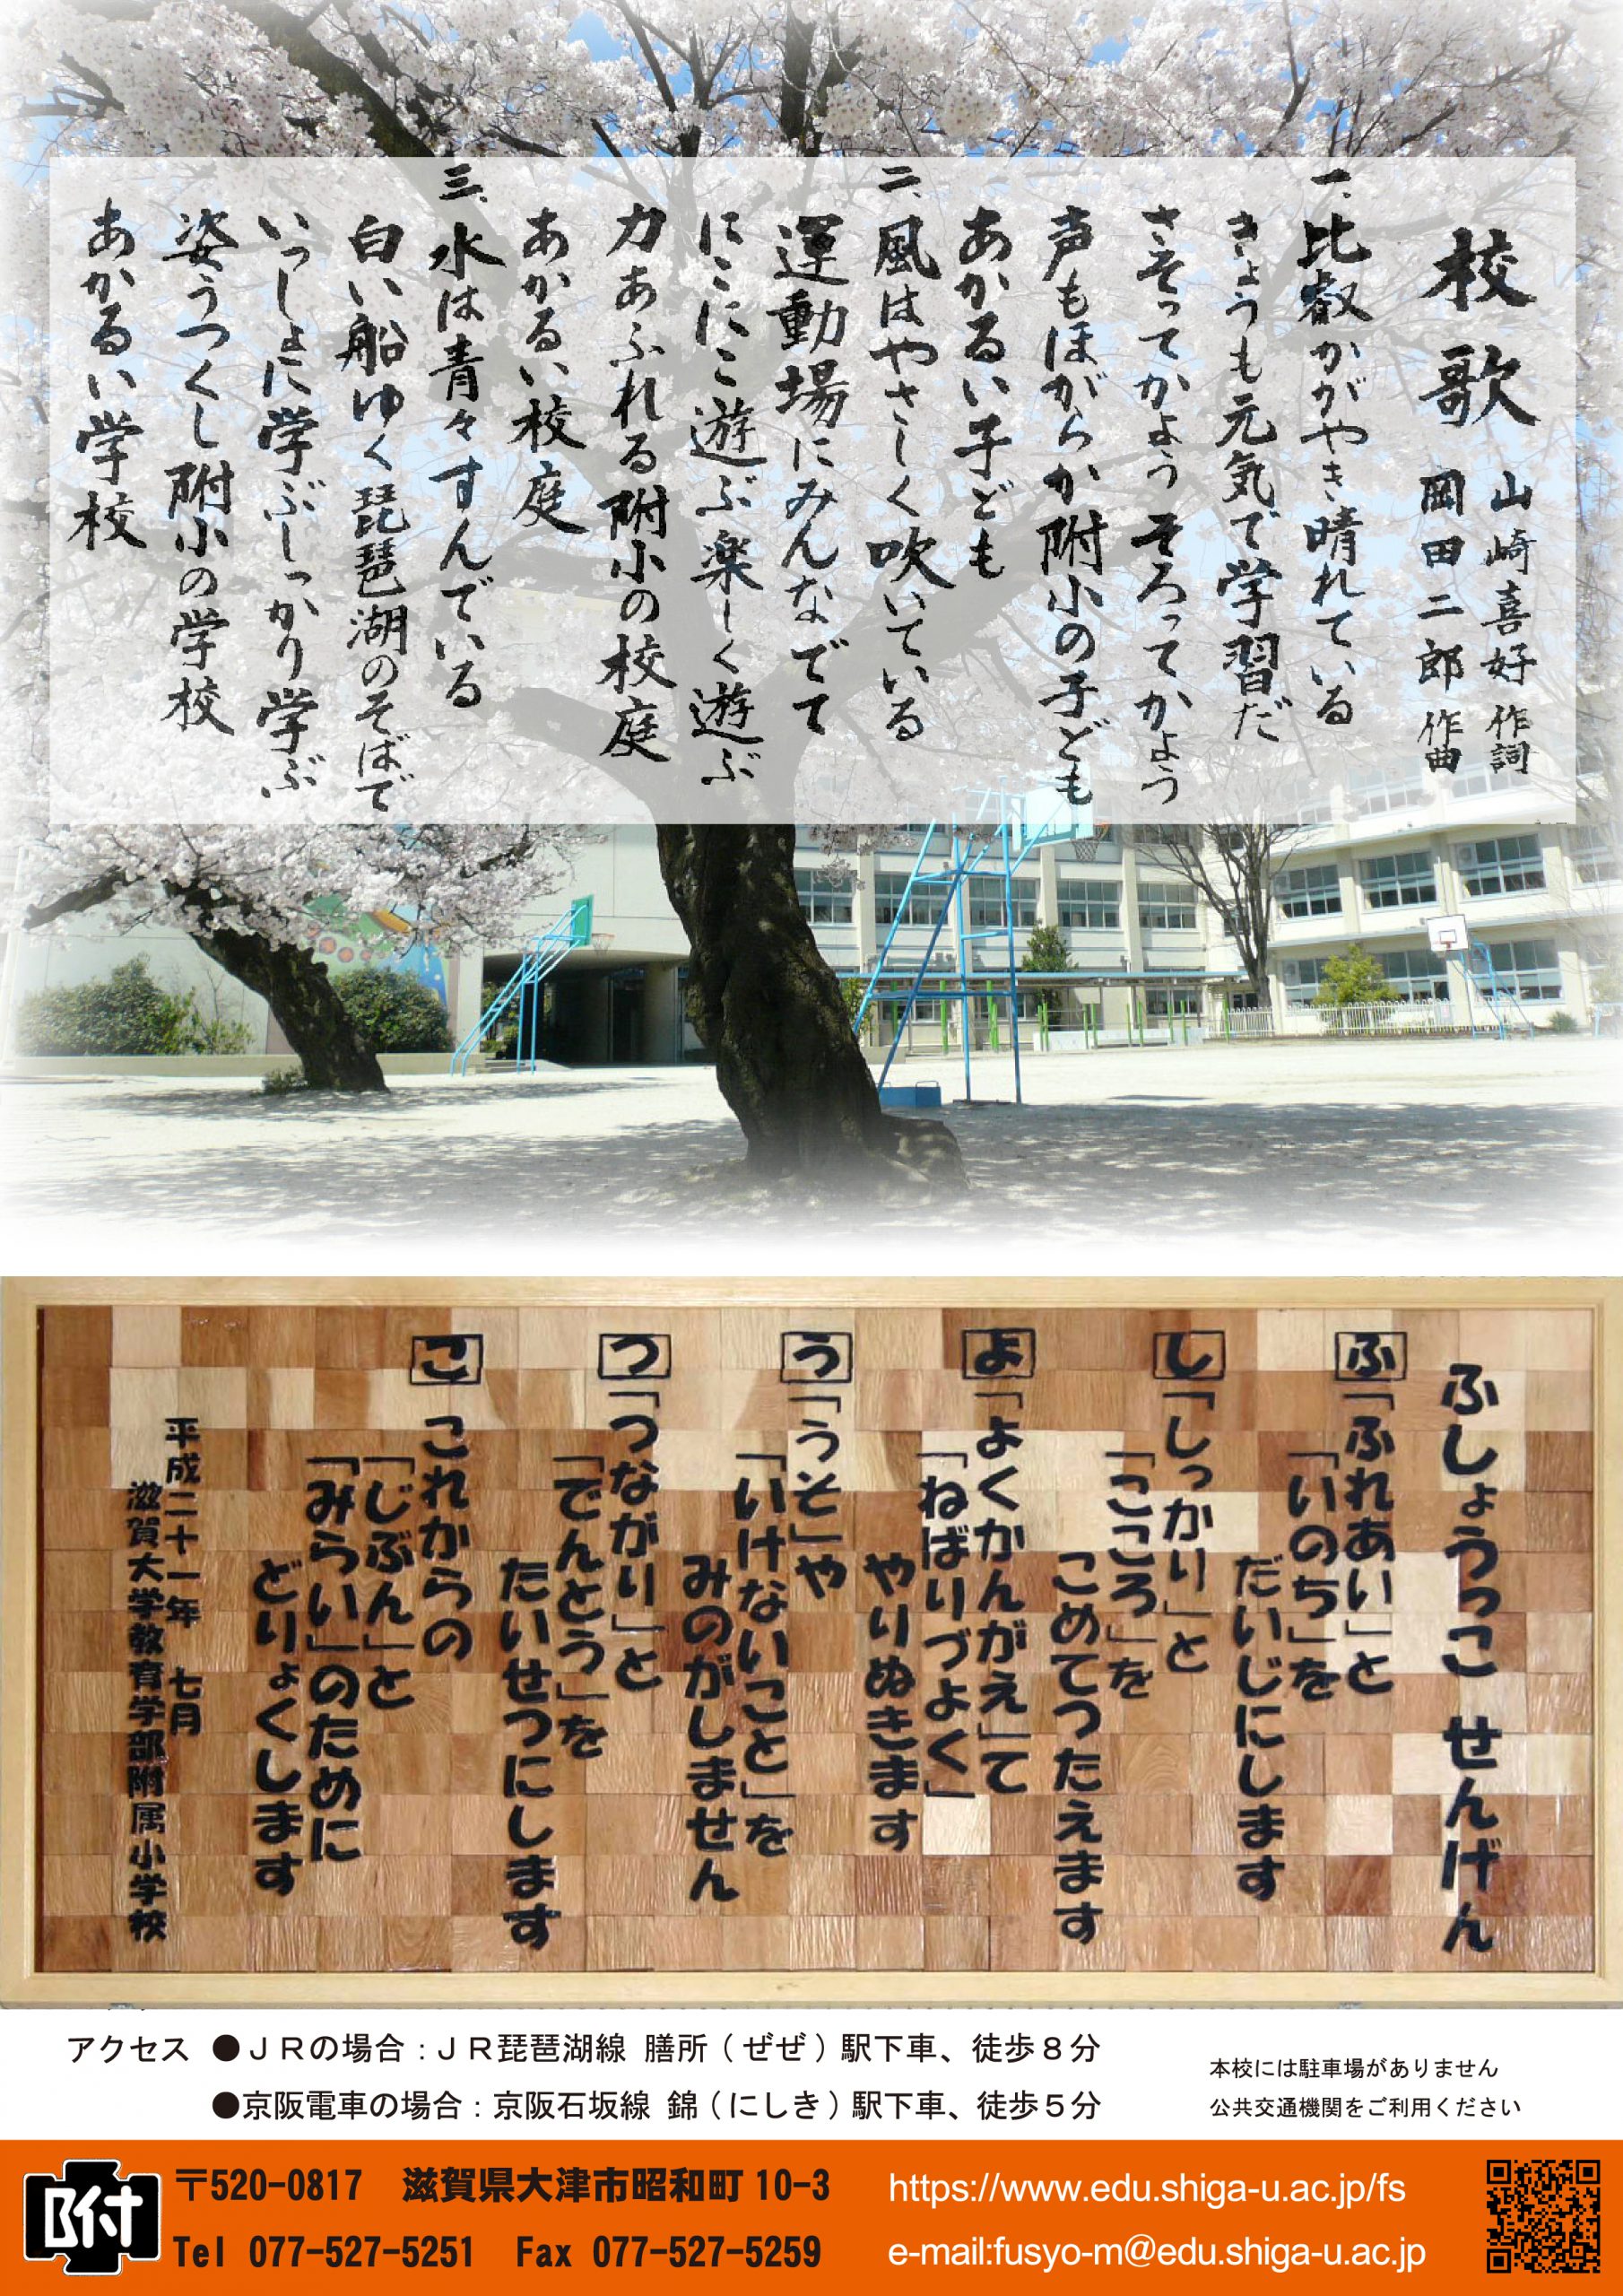 校歌
山崎喜好 作詞
岡田二郎 作曲
一、比叡かがやき晴れている
きょうも元気で学習だ
さそってかよう そろってかよう
声もほがらか附小の子ども
あかるい子ども
二、風はやさしく吹いている
運動場にみんなでて
にこにこ遊ぶ楽しく遊ぶ
力あふれる附小の校庭
あかるい校庭
三、水は青々すんでいる
白い船ゆく琵琶湖のそばで
いっしょに学ぶしっかり学ぶ
姿うつくし附小の学校
あかるい学校
ふしょうっこ せんげん
ふ「ふれあい」と
「いのち」を
だいじにします
し「しっかり」と
「こころ」を
こめてつたえます
よ「よくかんがえ」て
「ねばりづよく」
やりぬきます
う「うそ」や
「いけないこと」を
みのがしません
つ「つながり」と
「でんとう」を
たいせつにします
こ これからの
「じぶん」と
「みらい」のために
どりょくします
平成二十一年 七月
滋賀大学教育学部附属小学校
アクセス ●JRの場合:JR琵琶湖線 膳所(ぜぜ)駅下車、徒歩8分
●京阪電車の場合:京阪石坂線 錦(にしき)駅下車、徒歩5分
本校には駐車場がありません
公共交通機関をご利用ください
附
〒520-0817 滋賀県大津市昭和町10-3
Tel 077-527-5251 Fax 077-527-5259
https://www.edu.shiga-u.ac.jp/fs
e-mail:fusyo-m@edu.shiga-u.ac.jp